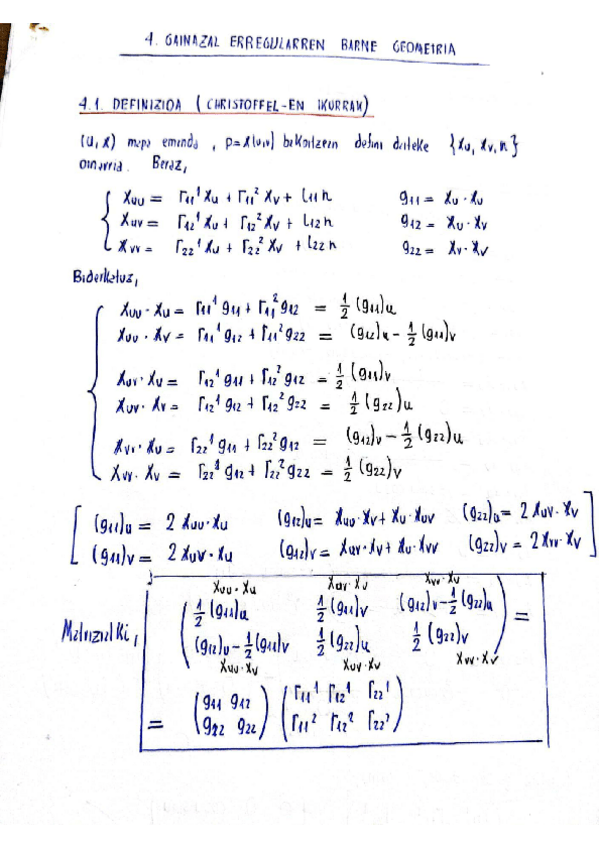 4. GAINAZAL ERREGULARREN BARNE GEOMETRIA
4.1. DEFINIZIOA (CHRISTOFFEL-EN IKURRAK)
(U, x) mapa emanda, p = x(u,v) bakoitzean defini daiteke {x_u, x_v, n}
oinarria. Beraz,
x_uu = Γ₁₁¹ x_u + Γ₁₁² x_v + L₁₁ n g₁₁ = x_u · x_u
x_uv = Γ₁₂¹ x_u + Γ₁₂² x_v + L₁₂ n g₁₂ = x_u · x_v
x_vv = Γ₂₂¹ x_u + Γ₂₂² x_v + L₂₂ n g₂₂ = x_v · x_v
Biderketuz,
x_uu · x_u = Γ₁₁¹ g₁₁ + Γ₁₁² g₁₂ = 1/2 (g₁₁)_u
x_uu · x_v = Γ₁₁¹ g₁₂ + Γ₁₁² g₂₂ = (g₁₂)_u - 1/2 (g₁₁)_v
x_uv · x_u = Γ₁₂¹ g₁₁ + Γ₁₂² g₁₂ = 1/2 (g₁₁)_v
x_uv · x_v = Γ₁₂¹ g₁₂ + Γ₁₂² g₂₂ = 1/2 (g₂₂)_u
x_vv · x_u = Γ₂₂¹ g₁₁ + Γ₂₂² g₁₂ = (g₁₂)_v - 1/2 (g₂₂)_u
x_vv · x_v = Γ₂₂¹ g₁₂ + Γ₂₂² g₂₂ = 1/2 (g₂₂)_v
(g₁₁)_u = 2 x_uu · x_u (g₁₂)_u = x_uu · x_v + x_u · x_uv (g₂₂)_u = 2 x_uv · x_v
(g₁₁)_v = 2 x_uv · x_u (g₁₂)_v = x_uv · x_v + x_u · x_vv (g₂₂)_v = 2 x_vv · x_v
x_uu · x_u x_uv · x_u x_vv · x_u
1/2 (g₁₁)_u 1/2 (g₁₁)_v (g₁₂)_v - 1/2 (g₂₂)_u
Matrizialki, =
(g₁₂)_u - 1/2 (g₁₁)_v 1/2 (g₂₂)_u 1/2 (g₂₂)_v
x_uu · x_v x_uv · x_v x_vv · x_v
g₁₁ g₁₂ Γ₁₁¹ Γ₁₂¹ Γ₂₂¹
= g₁₂ g₂₂ Γ₁₁² Γ₁₂² Γ₂₂²